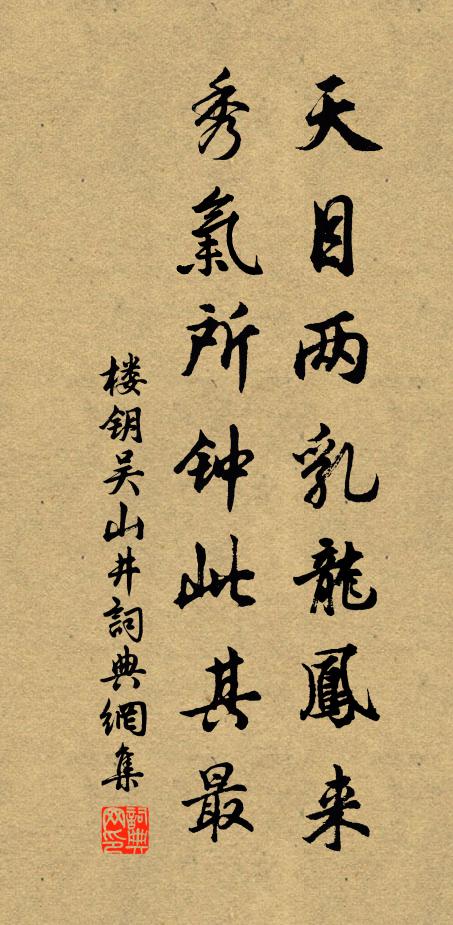 天目两乳龍鳳来
秀氣所钟此其最
楼钥吴山井詞典網集
詞典网印